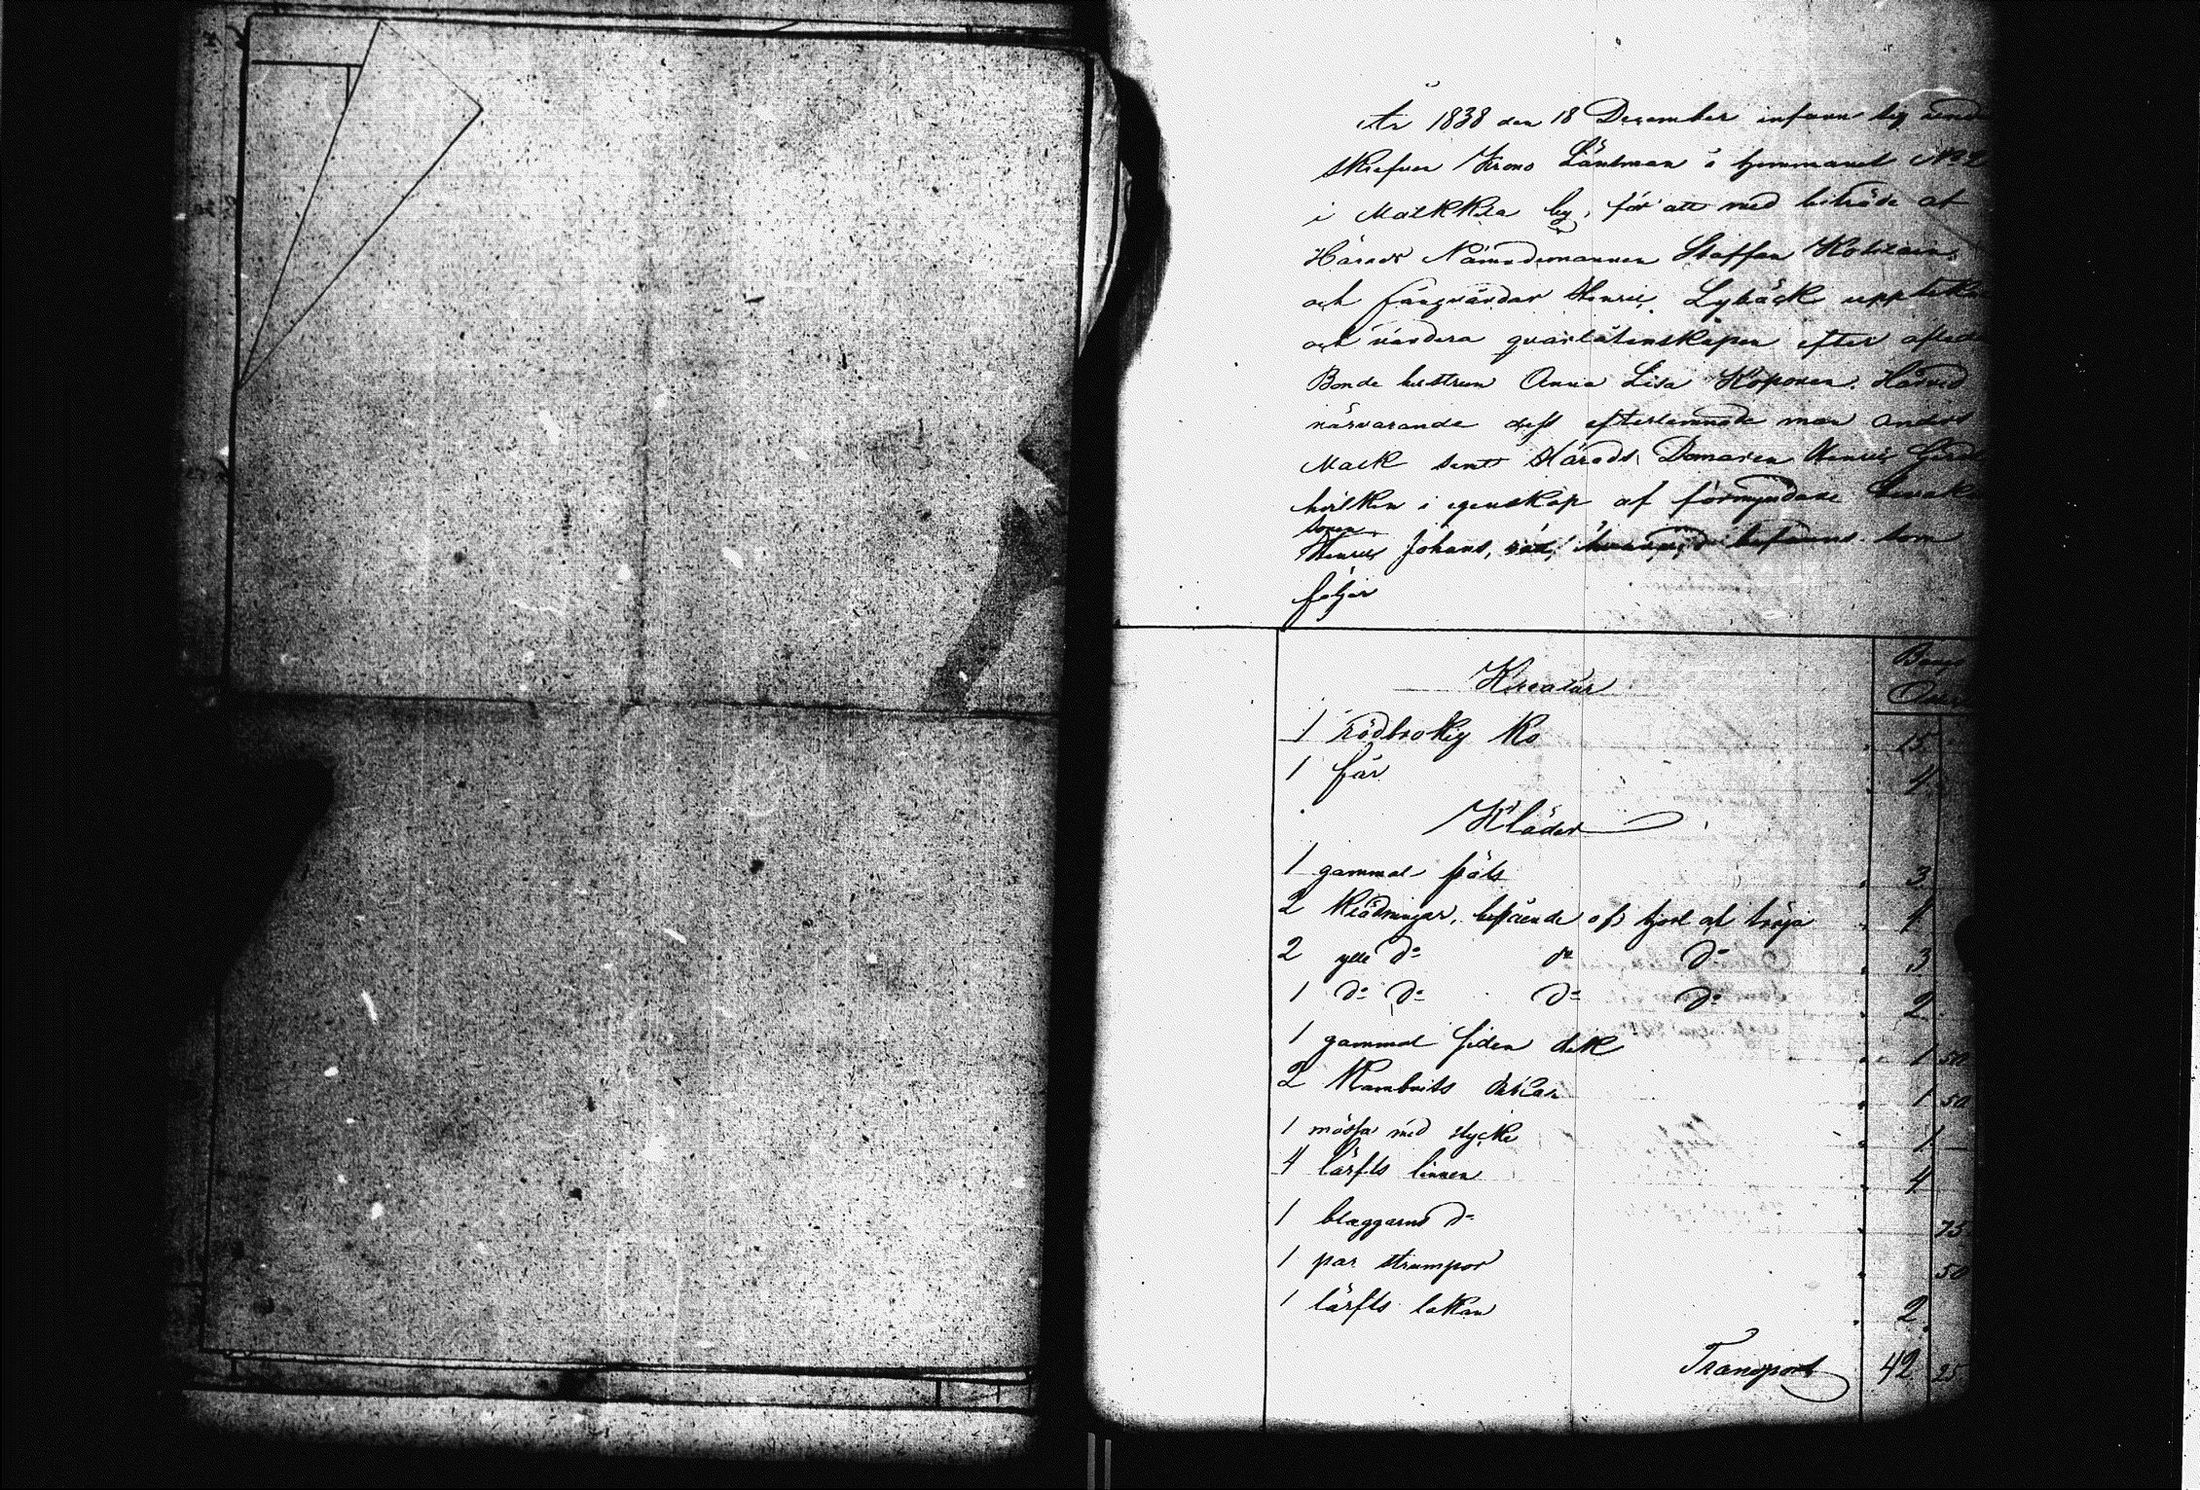 År 1838 den 18 December infann sig under
skrefven Krono Länsman å hemmanet N:o 2
i Matkkila by, för att med biträde af
Härads Nämndemannen Staffan Kolkain
och fångvårdar Henric Lybäck uppteckna
och värdera qvarlåtenskapen efter aflidne
Bonde hustrun Anna Lisa Koponen. Härvid
närvarande dess efterlemnade man Anders
Mack samt Härads Domaren Henric
hvilken i egenskap af förmyndare bevaka
sonen
Henric Johans, rätt, befanns som
följer
Kreatur
1 rödbrokig Ko 15
1 får 1
Kläder
1 gammal päls 3
2 Klädningar, bestående af kjol och tröja 4
2 ylle d:o d:o d:o 3
1 d:o d:o d:o d:o 2
1 gammal siden duk 1 50
2 Kambrits dukar 1 50
1 mössa med stycke 1 —
4 lärfts linnen 4
1 blaggarns d:o 75
1 par strumpor 50
1 lärfts lakan 2
Transport 42 25